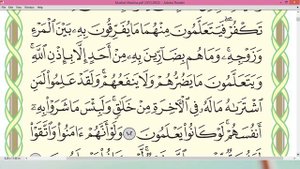 تَكْفُرْ فَيَتَعَلَّمُونَ مِنْهُمَا مَا يُفَرِّقُونَ بِهِ بَيْنَ الْمَرْءِ
وَزَوْجِهِ وَمَا هُم بِضَارِّينَ بِهِ مِنْ أَحَدٍ إِلَّا بِإِذْنِ اللَّهِ
وَيَتَعَلَّمُونَ مَا يَضُرُّهُمْ وَلَا يَنفَعُهُمْ وَلَقَدْ عَلِمُوا لَمَنِ
اشْتَرَاهُ مَا لَهُ فِي الْآخِرَةِ مِنْ خَلَاقٍ وَلَبِئْسَ مَا شَرَوْا بِهِ
أَنفُسَهُمْ لَوْ كَانُوا يَعْلَمُونَ ١٠٢ وَلَوْ أَنَّهُمْ ءَامَنُوا وَاتَّقَوْا